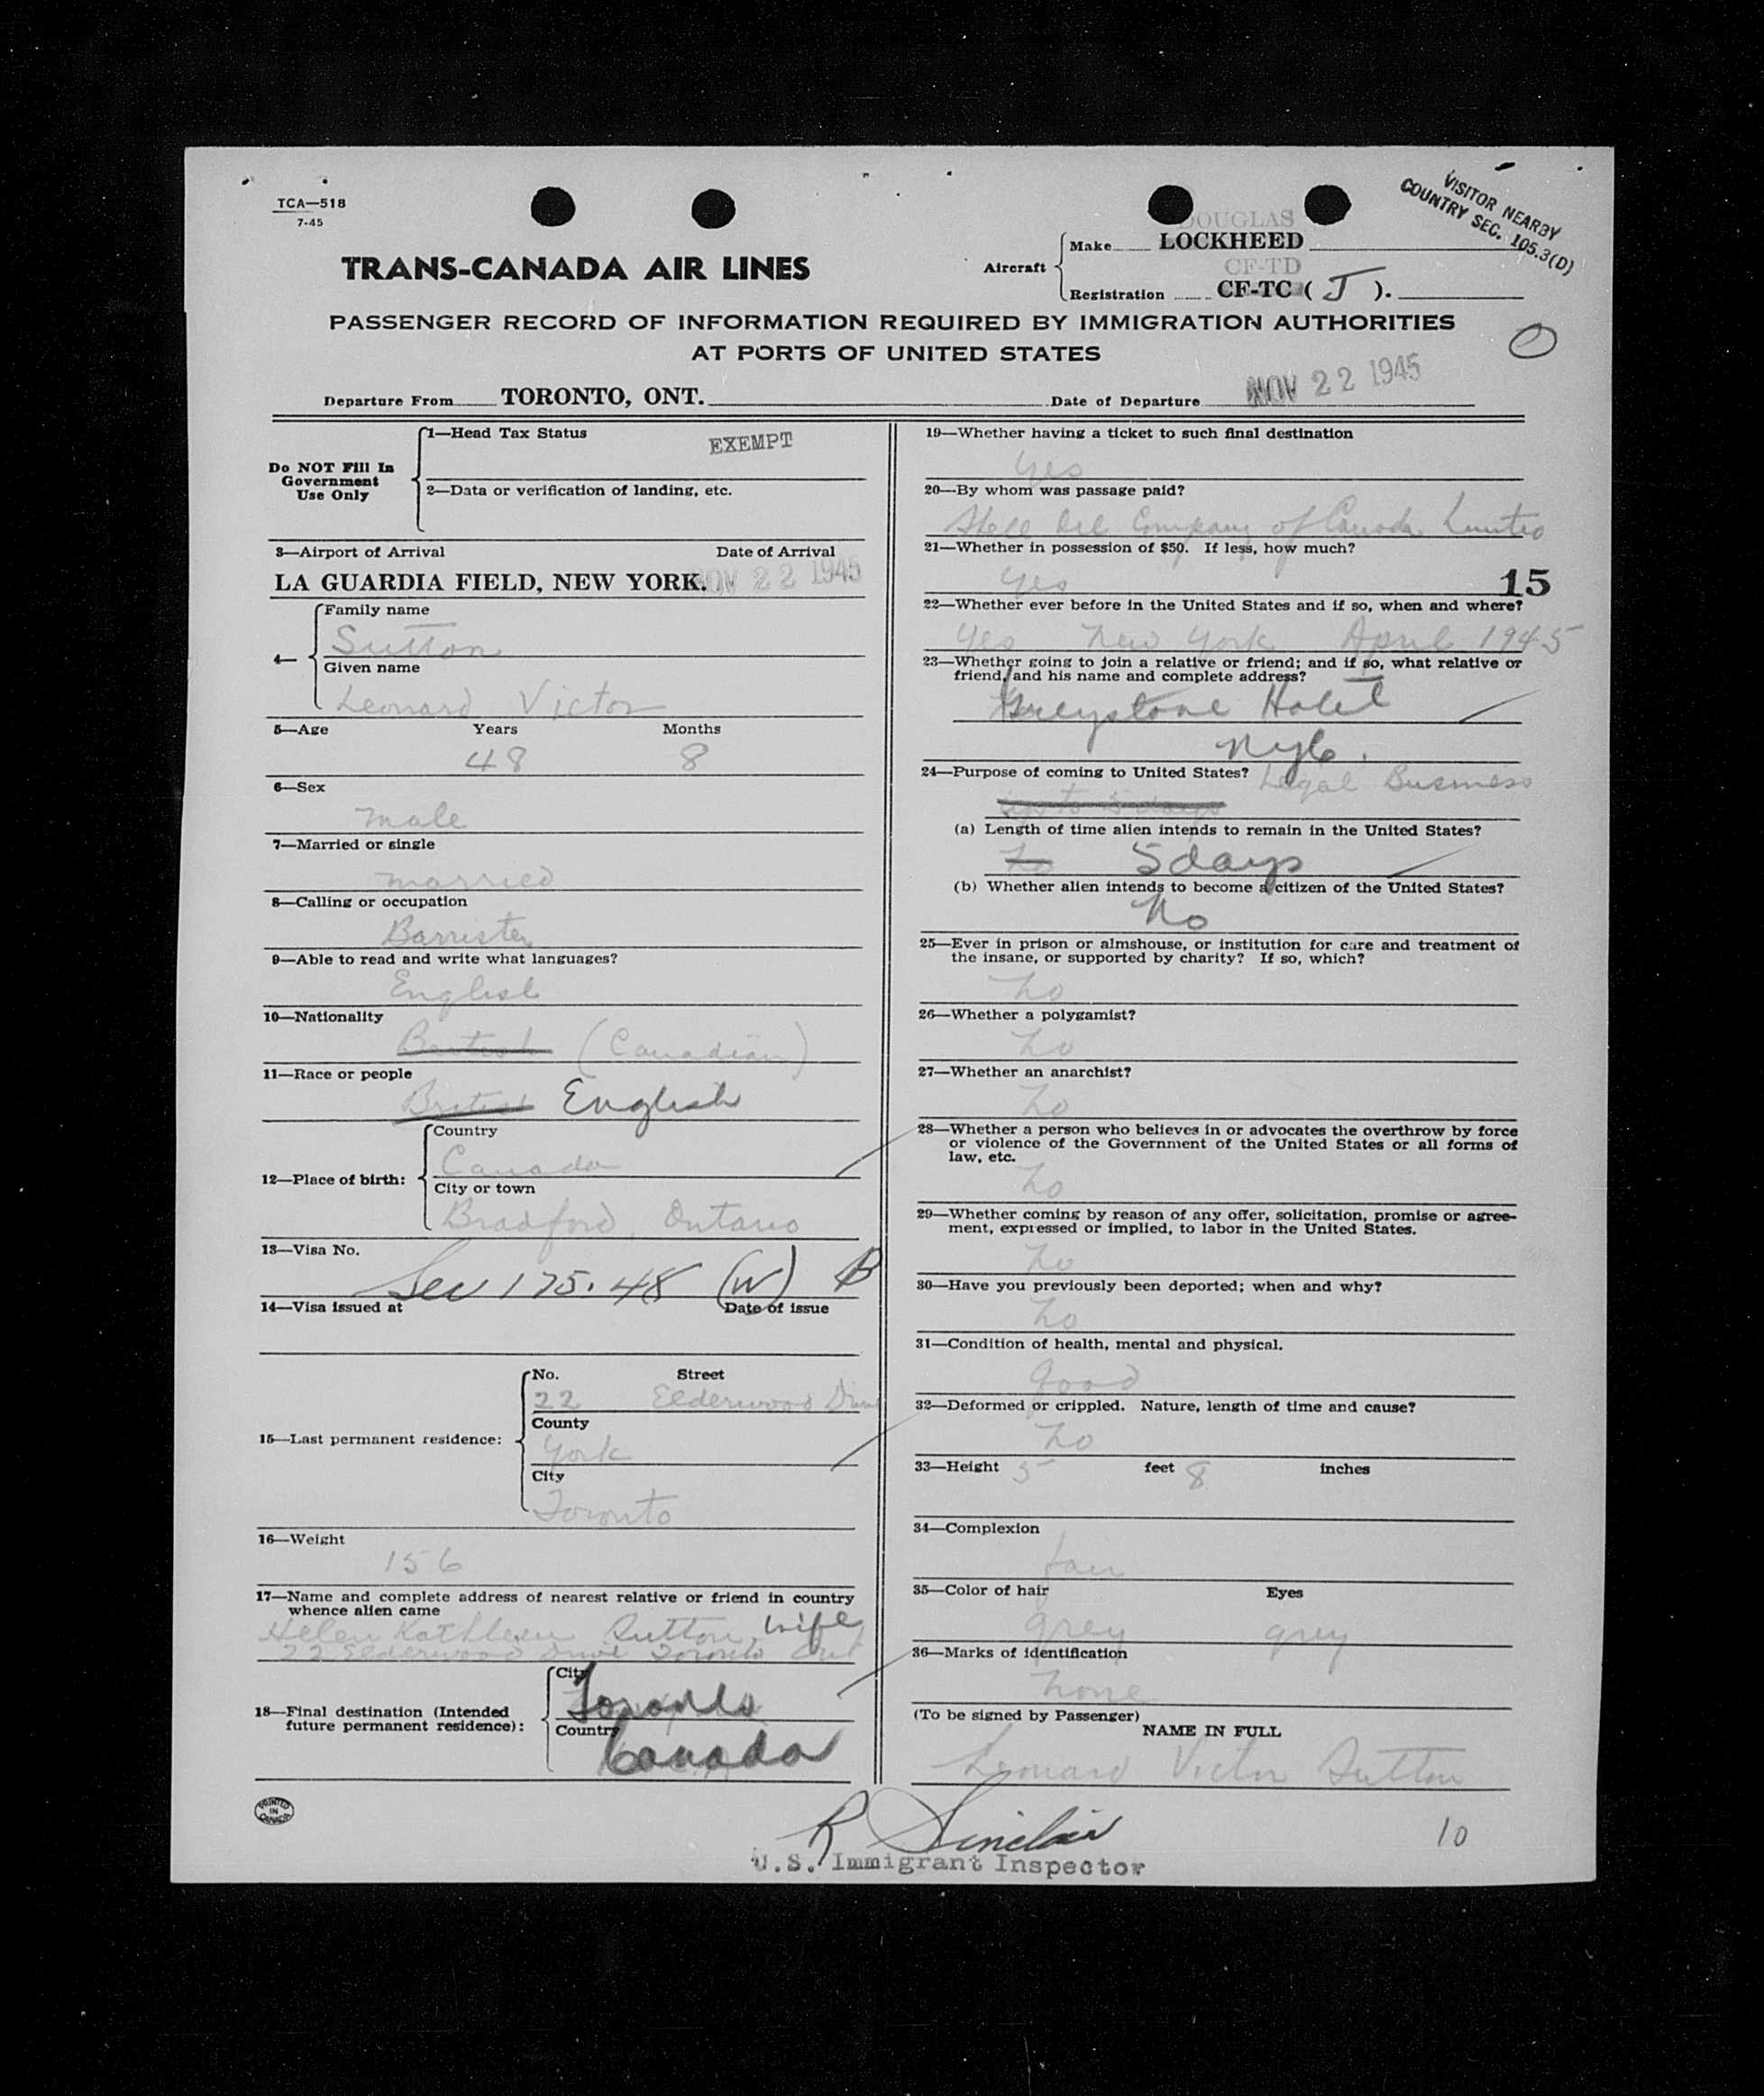 TCA—518
7-45
VISITOR NEARBY
COUNTRY SEC. 105.3(D)
TRANS-CANADA AIR LINES
Aircraft
DOUGLAS
Make LOCKHEED
CF-TD
Registration CF-TC ( J ).
PASSENGER RECORD OF INFORMATION REQUIRED BY IMMIGRATION AUTHORITIES
AT PORTS OF UNITED STATES
Departure From TORONTO, ONT. Date of Departure NOV 22 1945
Do NOT Fill In
Government
Use Only
1—Head Tax Status EXEMPT
2—Data or verification of landing, etc.
3—Airport of Arrival Date of Arrival
LA GUARDIA FIELD, NEW YORK. NOV 22 1945
4—
Family name
Sutton
Given name
Leonard Victor
5—Age Years Months
48 8
6—Sex
male
7—Married or single
married
8—Calling or occupation
Barrister
9—Able to read and write what languages?
English
10—Nationality
British (Canadian)
11—Race or people
British English
12—Place of birth:
Country
Canada
City or town
Bradford, Ontario
13—Visa No.
Sec 175.48 (W) B
14—Visa issued at Date of issue
15—Last permanent residence:
No. Street
22 Elderwood Drive
County
York
City
Toronto
16—Weight
156
17—Name and complete address of nearest relative or friend in country
whence alien came
Helen Kathleen Sutton, wife
22 Elderwood Drive Toronto Ont
18—Final destination (Intended
future permanent residence):
City
Toronto
Country
Canada
PRINTED
IN
CANADA
19—Whether having a ticket to such final destination
yes
20—By whom was passage paid?
Shell Oil Company of Canada Limited
21—Whether in possession of $50. If less, how much?
yes 15
22—Whether ever before in the United States and if so, when and where?
Yes New York April 1945
23—Whether going to join a relative or friend; and if so, what relative or
friend, and his name and complete address?
Greystone Hotel
NYC.
24—Purpose of coming to United States? Legal Business
up to 5 days
(a) Length of time alien intends to remain in the United States?
no 5 days
(b) Whether alien intends to become a citizen of the United States?
No
25—Ever in prison or almshouse, or institution for care and treatment of
the insane, or supported by charity? If so, which?
no
26—Whether a polygamist?
no
27—Whether an anarchist?
no
28—Whether a person who believes in or advocates the overthrow by force
or violence of the Government of the United States or all forms of
law, etc.
no
29—Whether coming by reason of any offer, solicitation, promise or agree-
ment, expressed or implied, to labor in the United States.
no
30—Have you previously been deported; when and why?
no
31—Condition of health, mental and physical.
good
32—Deformed or crippled. Nature, length of time and cause?
no
33—Height 5 feet 8 inches
34—Complexion
fair
35—Color of hair Eyes
grey grey
36—Marks of identification
none
(To be signed by Passenger)
NAME IN FULL
Leonard Victor Sutton
R Sinclair
U.S. Immigrant Inspector
10